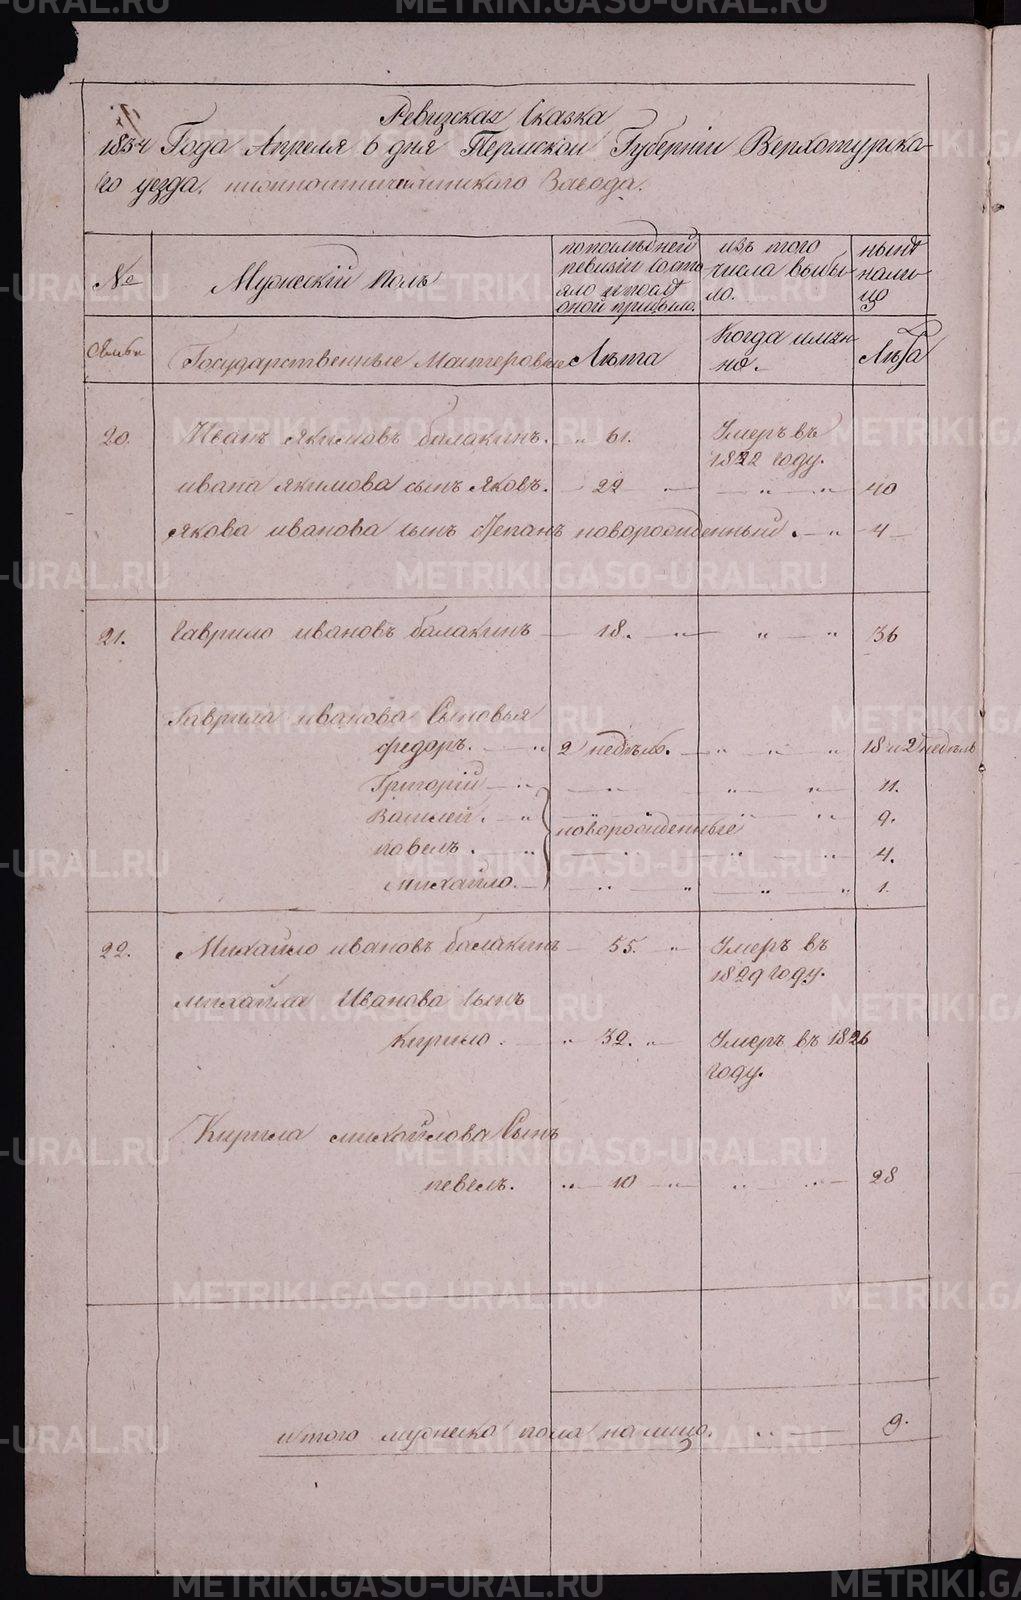 Ревизская Сказка
1834 Года Апреля 6 дня Пермской Губернiи Верхотурска-
го уезда. Завода.
№
Мужескiй полъ
по последней
ревизiи состо
яло и после
оной прибыло.
изъ того
числа выбы-
ло.
ныне
нали-
цо
Семьи
Государственные Мастеровые
Лѣта
Когда имян
но.
Лѣта
20.
Иванъ якимовъ балакинъ. „ 61.
Умеръ въ
1822 году.
ивана якимова сынъ яковъ. — 22 „ — „ — „ — 40
якова иванова сынъ Степанъ новорожденный. — „ — 4 —
21.
Гаврило ивановъ балакинъ — 18. „ — „ — „ 36
Гаврила иванова Сыновья
федоръ. — „ 2 недѣль. — „ — „ — „ 18 и 2 недѣль
Григорiй — „ — „ — „ — „ 11.
Василей. — „ — „ — „ 9.
новорожденные
павелъ. — „ — „ — „ — „ 4.
михайло. — „ „ „ — „ 1.
22.
Михайло ивановъ балакинъ — 55. „
Умеръ въ
1829 году.
михайла Иванова сынъ
кирило. — „ 32. „
Умеръ въ 1826
году.
Кирила михайлова Сынъ
певелъ. „ — 10 — „ „ „ — 28
итого мужеска пола налицо. „ — 9.
METRIKI.GASO-URAL.RU